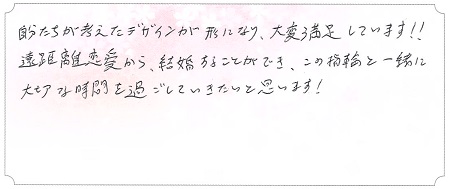 自分たちが考えたデザインが形になり、大変満足しています!!
遠距離恋愛から、結婚することができ、この指輪と一緒に
大切な時間を過ごしていきたいと思います!